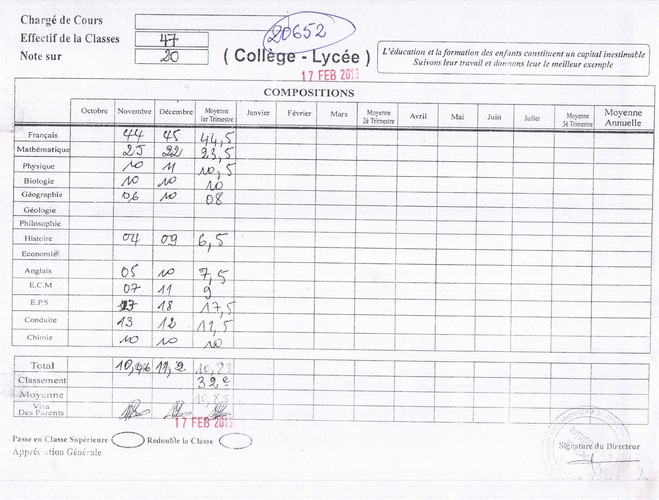 Chargé de Cours
20652
Effectif de la Classes 47
Note sur 20
( Collège - Lycée )
L'éducation et la formation des enfants constituent un capital inestimable
Suivons leur travail et donnons leur le meilleur exemple
17 FEB 2015
COMPOSITIONS
Octobre Novembre Décembre Moyenne 1er Trimestre Janvier Février Mars Moyenne 2è Trimestre Avril Mai Juin Juillet Moyenne 3è Trimestre Moyenne Annuelle
Français 44 45 44,5
Mathématique 25 22 23,5
Physique 10 11 10,5
Biologie 10 10 10
Géographie 06 10 08
Géologie
Philosophie
Histoire 04 09 6,5
Economie
Anglais 05 10 7,5
E.C.M 07 11 9
E.P.S 17 18 17,5
Conduite 13 12 12,5
Chimie 10 10 10
Total 10,46 11,2 10,83
Classement 32e
Moyenne 10,83
Visa Des Parents
17 FEB 2015
Passe en Classe Supérieure Redouble la Classe
Appréciation Générale
Signature du Directeur